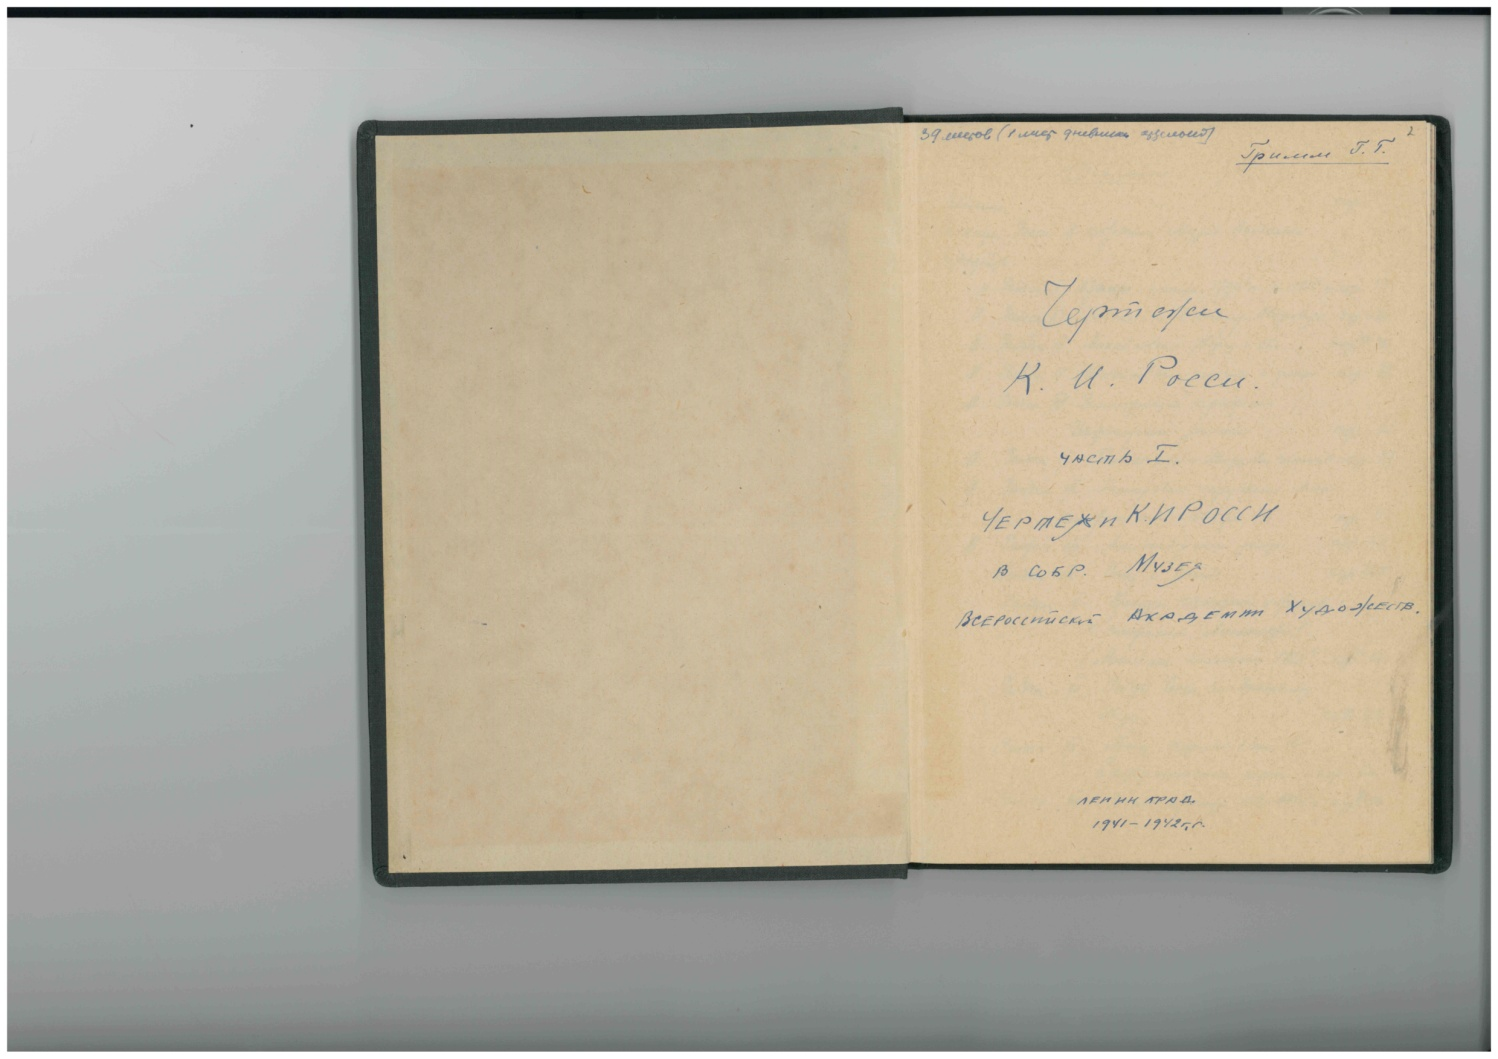 39 листов (1 лист дневника
2
Гримм Г.Г.
Чертежи
К. И. Росси.
часть I.
ЧЕРТЕЖИ К.И РОССИ
В СОБР. МУЗЕЯ
ВСЕРОССИЙСКОЙ АКАДЕМИИ ХУДОЖЕСТВ.
ЛЕНИНГРАД.
1941–1942 г.г.